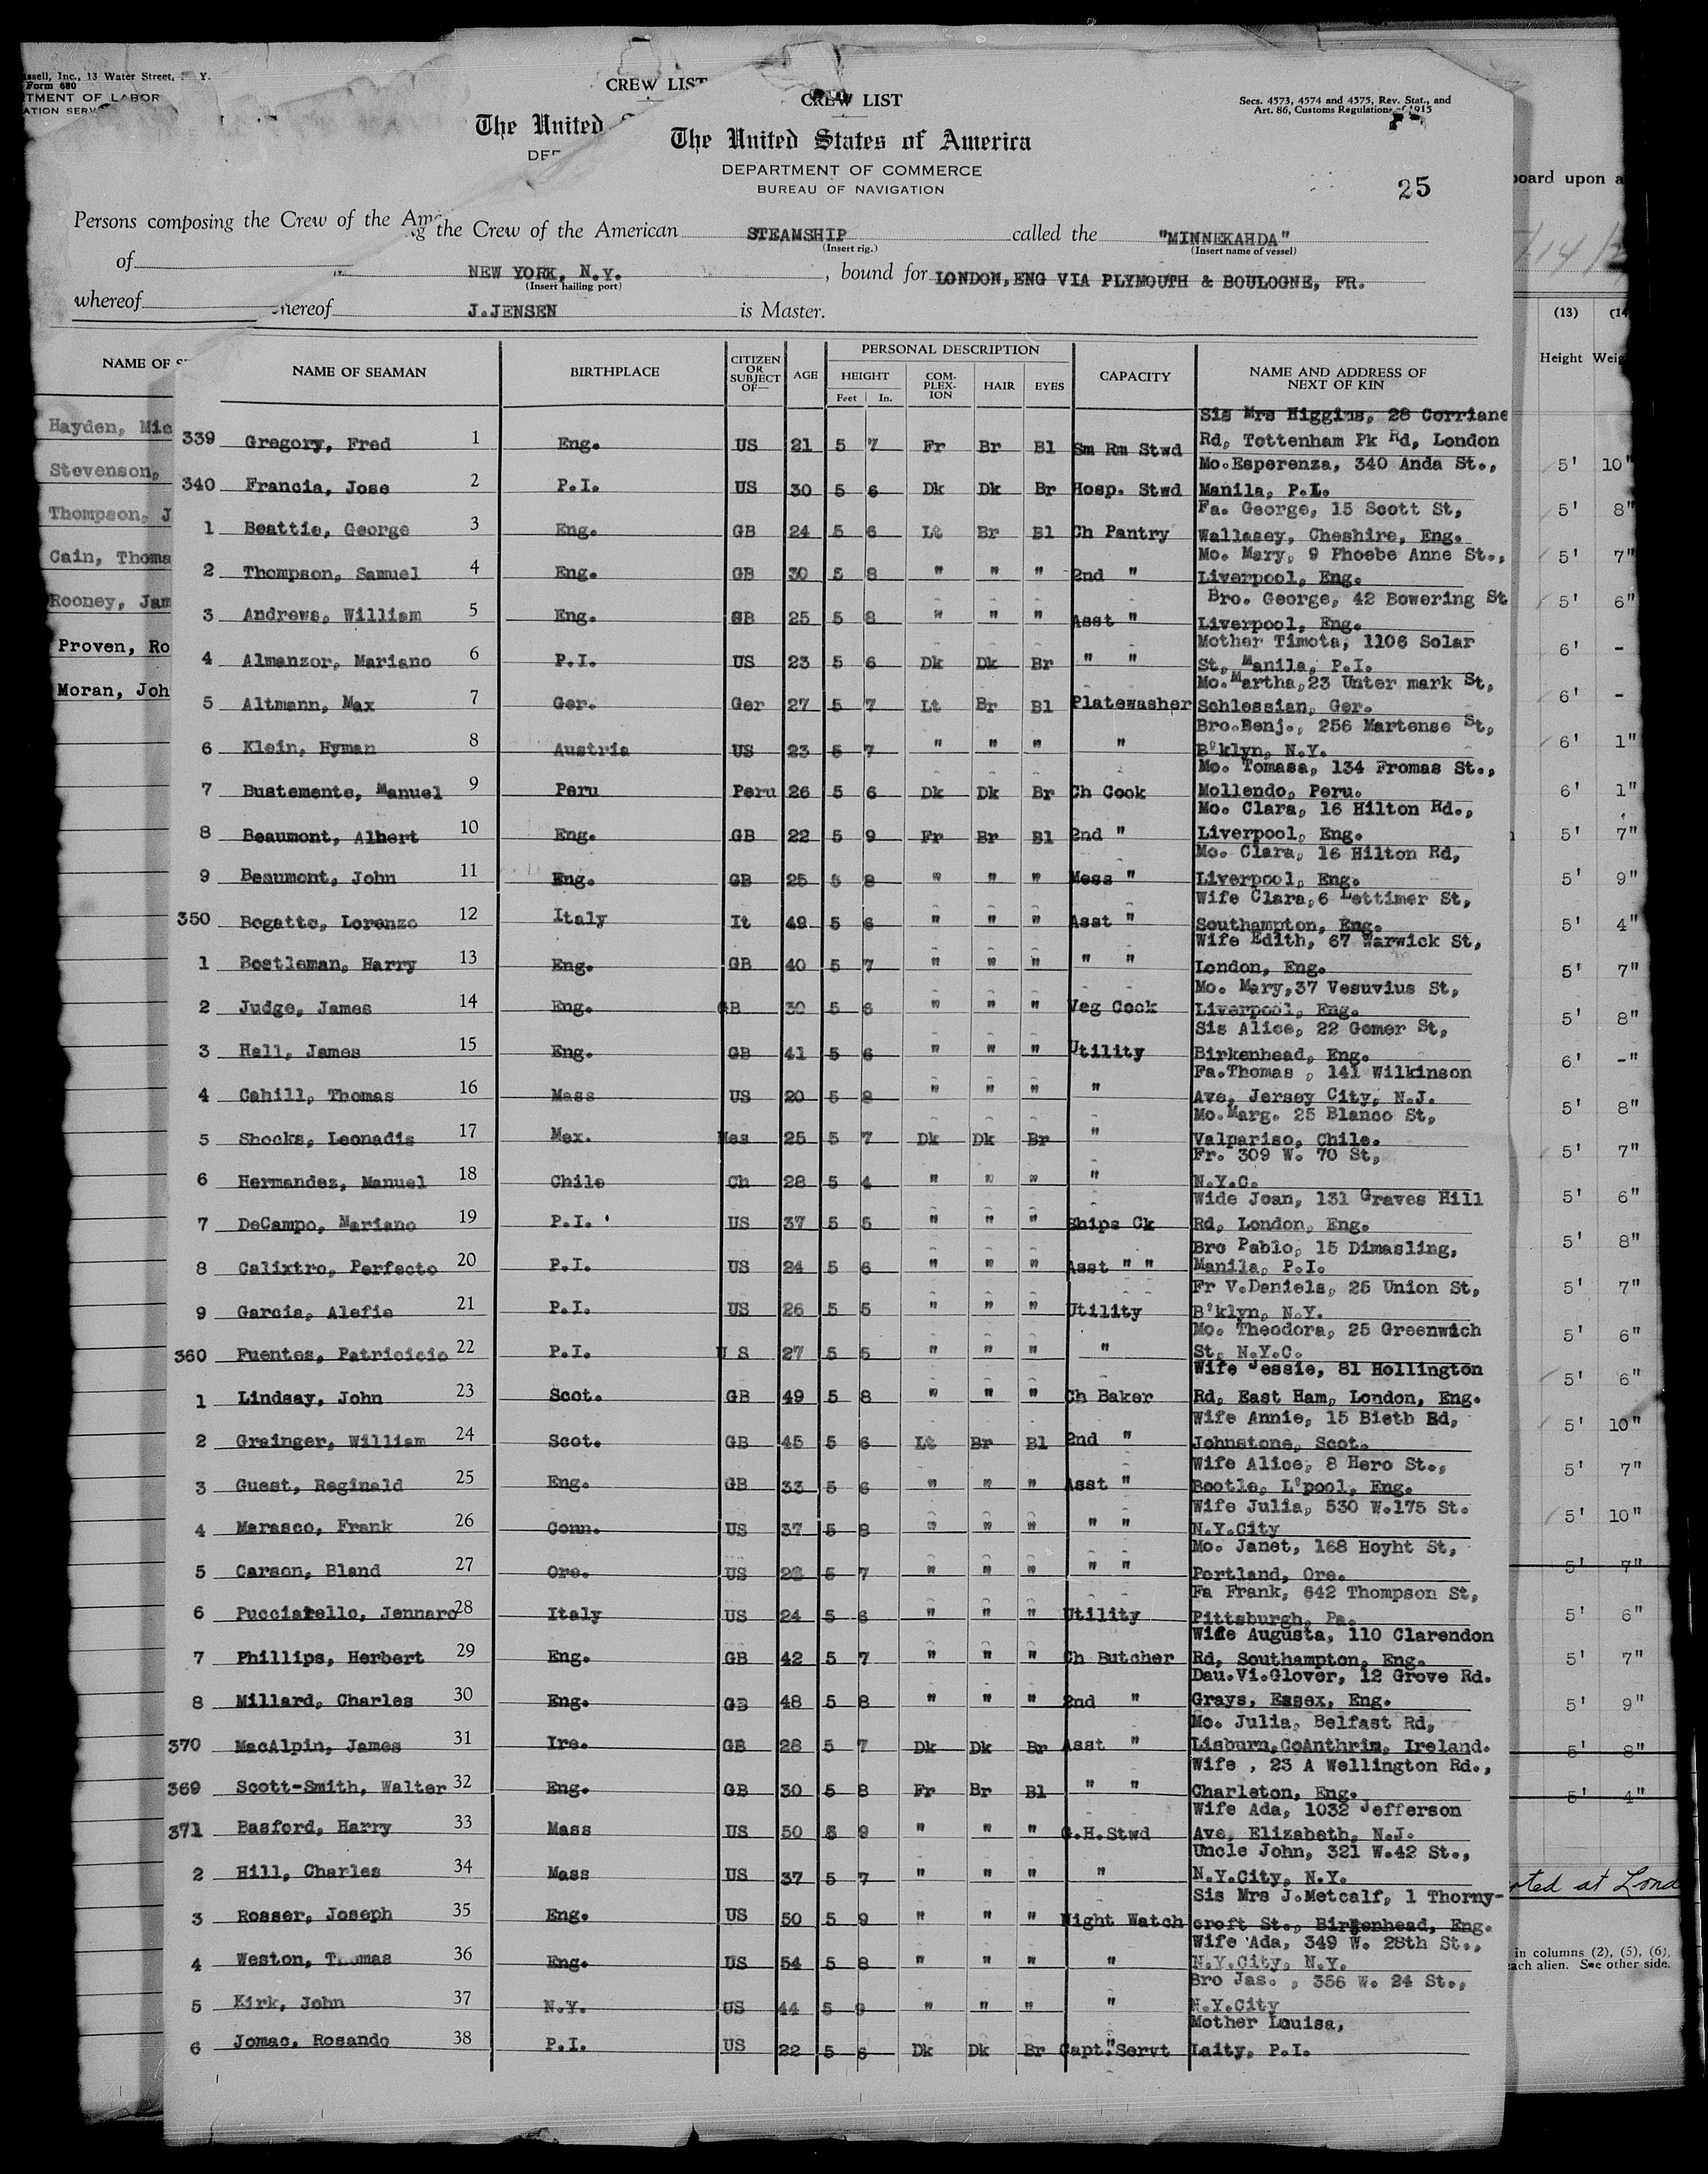 ssell, Inc., 13 Water Street, N. Y.
Form 680
TMENT OF LABOR
ATION SERV
CREW LIST
The United
DEP
Persons composing the Crew of the Ame
of
whereof
NAME OF S
Hayden, Mic
Stevenson,
Thompson, J
Cain, Thoma
Rooney, Jam
Proven, Ro
Moran, Joh
CREW LIST
Secs. 4573, 4574 and 4575, Rev. Stat., and
Art. 86, Customs Regulations of 1915
The United States of America
DEPARTMENT OF COMMERCE
BUREAU OF NAVIGATION
25
g the Crew of the American STEAMSHIP called the "MINNEKAHDA"
(Insert rig.) (Insert name of vessel)
NEW YORK, N.Y. , bound for LONDON,ENG VIA PLYMOUTH & BOULOGNE, FR.
(Insert hailing port)
hereof J.JENSEN is Master.
NAME OF SEAMAN BIRTHPLACE CITIZEN OR SUBJECT OF— AGE PERSONAL DESCRIPTION HEIGHT Feet In. COM-PLEX-ION HAIR EYES CAPACITY NAME AND ADDRESS OF NEXT OF KIN
Sis Mrs Higgins, 28 Corriane
339 Gregory, Fred 1 Eng. US 21 5 7 Fr Br Bl Sm Rm Stwd Rd, Tottenham Pk Rd, London
Mo.Esperenza, 340 Anda St.,
340 Francia, Jose 2 P.I. US 30 5 6 Dk Dk Br Hosp. Stwd Manila, P.I.
Fa. George, 15 Scott St,
1 Beattie, George 3 Eng. GB 24 5 6 Lt Br Bl Ch Pantry Wallasey, Cheshire, Eng.
Mo. Mary, 9 Phoebe Anne St.,
2 Thompson, Samuel 4 Eng. GB 30 5 8 " " " 2nd " Liverpool, Eng.
Bro. George, 42 Bowering St
3 Andrews, William 5 Eng. GB 25 5 8 " " " Asst " Liverpool, Eng.
Mother Timota, 1106 Solar
4 Almanzor, Mariano 6 P.I. US 23 5 6 Dk Dk Br " " St, Manila, P.I.
Mo.Martha,23 Unter mark St,
5 Altmann, Max 7 Ger. Ger 27 5 7 Lt Br Bl Platewasher Schlessian, Ger.
Bro.Benj., 256 Martense St,
6 Klein, Hyman 8 Austria US 23 5 7 " " " " B'klyn, N.Y.
Mo. Tomasa, 134 Fromas St.,
7 Bustemente, Manuel 9 Peru Peru 26 5 6 Dk Dk Br Ch Cook Mollendo, Peru.
Mo. Clara, 16 Hilton Rd.,
8 Beaumont, Albert 10 Eng. GB 22 5 9 Fr Br Bl 2nd " Liverpool, Eng.
Mo. Clara, 16 Hilton Rd,
9 Beaumont, John 11 Eng. GB 25 5 8 " " " Mess " Liverpool, Eng.
Wife Clara,6 Lettimer St,
350 Bogatto, Lorenzo 12 Italy It 49 5 6 " " " Asst " Southampton, Eng.
Wife Edith, 67 Warwick St,
1 Bostleman, Harry 13 Eng. GB 40 5 7 " " " " " London, Eng.
Mo. Mary,37 Vesuvius St,
2 Judge, James 14 Eng. GB 30 5 6 " " " Veg Cook Liverpool, Eng.
Sis Alice, 22 Gomer St,
3 Hall, James 15 Eng. GB 41 5 6 " " " Utility Birkenhead, Eng.
Fa.Thomas , 141 Wilkinson
4 Cahill, Thomas 16 Mass US 20 5 8 " " " " Ave, Jersey City, N.J.
Mo.Marg. 25 Blanco St,
5 Shocks, Leonadis 17 Mex. Mes 25 5 7 Dk Dk Br " Valpariso, Chile.
Fr. 309 W. 70 St,
6 Hermandez, Manuel 18 Chile Ch 28 5 4 " " " " N.Y.C.
Wide Joan, 131 Graves Hill
7 DeCampo, Mariano 19 P.I. US 37 5 5 " " " Ships Ck Rd, London, Eng.
Bro Pablo, 15 Dimasling,
8 Calixtro, Perfecto 20 P.I. US 24 5 6 " " " Asst " " Manila, P.I.
Fr V.Daniels, 25 Union St,
9 Garcia, Alefie 21 P.I. US 26 5 5 " " " Utility B'klyn, N.Y.
Mo. Theodora, 25 Greenwich
360 Fuentes, Patricicio 22 P.I. U S 27 5 5 " " " " St, N.Y.C.
Wife Jessie, 81 Hollington
1 Lindsay, John 23 Scot. GB 49 5 8 " " " Ch Baker Rd, East Ham, London, Eng.
Wife Annie, 15 Bieth Rd,
2 Grainger, William 24 Scot. GB 45 5 6 Lt Br Bl 2nd " Johnstone, Scot.
Wife Alice, 8 Hero St.,
3 Guest, Reginald 25 Eng. GB 33 5 6 " " " Asst " Bootle, L'pool, Eng.
Wife Julia, 530 W.175 St.
4 Marasco, Frank 26 Conn. US 37 5 8 " " " " " N.Y.City
Mo. Janet, 168 Hoyht St,
5 Carson, Bland 27 Ore. US 28 5 7 " " " " " Portland, Ore.
Fa Frank, 642 Thompson St,
6 Pucciarello, Jennaro 28 Italy US 24 5 6 " " " Utility Pittsburgh, Pa.
Wife Augusta, 110 Clarendon
7 Phillips, Herbert 29 Eng. GB 42 5 7 " " " Ch Butcher Rd, Southampton, Eng.
Dau.Vi.Glover, 12 Grove Rd.
8 Millard, Charles 30 Eng. GB 48 5 8 " " " 2nd " Grays, Essex, Eng.
Mo. Julia, Belfast Rd,
370 MacAlpin, James 31 Ire. GB 28 5 7 Dk Dk Br Asst " Lisburn,CoAnthrim, Ireland.
Wife , 23 A Wellington Rd.,
369 Scott-Smith, Walter 32 Eng. GB 30 5 8 Fr Br Bl " " Charleton, Eng.
Wife Ada, 1032 Jefferson
371 Basford, Harry 33 Mass US 50 5 9 " " " G.H.Stwd Ave, Elizabeth, N.J.
Uncle John, 321 W.42 St.,
2 Hill, Charles 34 Mass US 37 5 7 " " " " N.Y.City, N.Y.
Sis Mrs J.Metcalf, 1 Thorny-
3 Rosser, Joseph 35 Eng. US 50 5 9 " " " Night Watch croft St., Birkenhead, Eng.
Wife Ada, 349 W. 28th St.,
4 Weston, Thomas 36 Eng. US 54 5 8 " " " " N.Y.City, N.Y.
Bro Jas. , 356 W. 24 St.,
5 Kirk, John 37 N.Y. US 44 5 9 " " " " N.Y.City
Mother Louisa,
6 Jomac, Rosando 38 P.I. US 22 5 6 Dk Dk Br Capt."Servt Laity, P.I.
board upon a
14/2
(13) (14
Height Weig
5' 10"
5' 8"
5' 7"
5' 6"
6' -
6' -
6' 1"
6' 1"
5' 7"
5' 9"
5' 4"
5' 7"
5' 8"
6' -"
5' 8"
5' 7"
5' 6"
5' 8"
5' 7"
5' 6"
5' 6"
5' 10"
5' 7"
5' 10"
5' 7"
5' 6"
5' 7"
5' 9"
5' 8"
5' 4"
oted at Lond
in columns (2), (5), (6),
each alien. See other side.